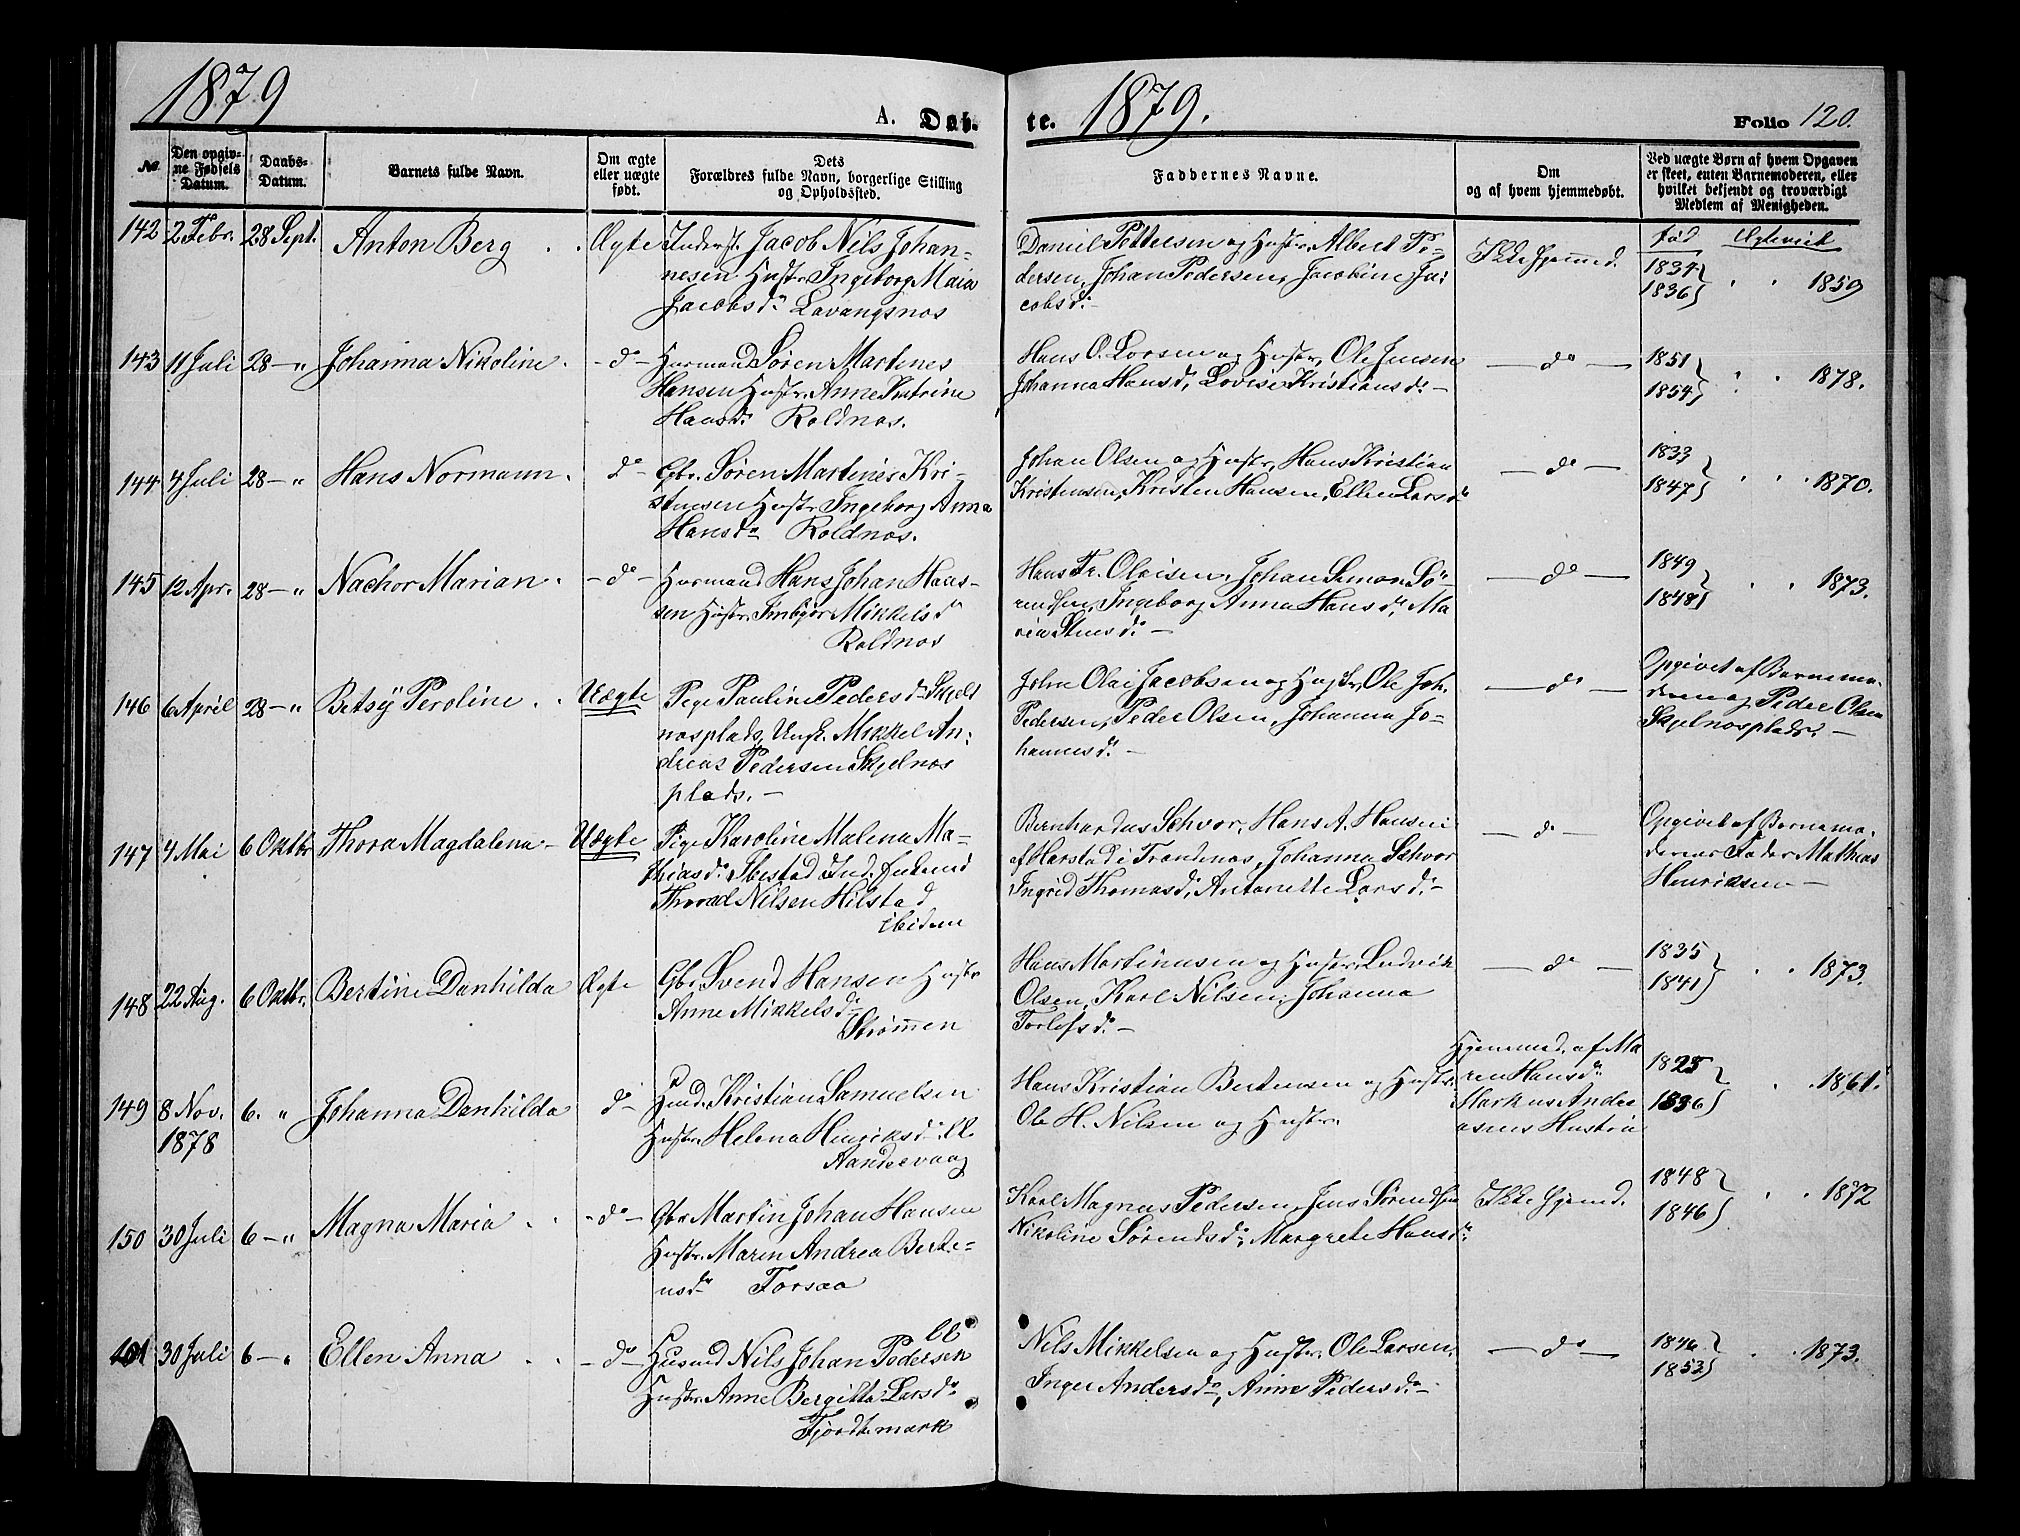 1879
A. Døb-
te.
1879.
Folio 120.
No.
Den opgiv-
ne Fødsels
Datum.
Daabs-
Datum.
Barnets fulde Navn.
Om ægte
eller uægte
født.
Dets
Forældres fulde Navn, borgerlige Stilling
og Opholdssted.
Faddernes Navne.
Om
og af hvem hjemmedøbt.
Ved uægte Børn af hvem Opgaven
er skeet, enten Barnemoderen, eller
hvilket bekjendt og troværdigt
Medlem af Menigheden.
142 2 Febr. 28 Sept. Anton Berg Ægte Inderst. Jacob Nils Johan-
nesen Hustr. Ingeborg Maia
Jacobsd. Lavangsnos
Daniel Pettersen og Hustr. Albert Pe-
dersen, Johan Pedersen, Jacobine Ja-
cobsd. -
Ikke hjemmd.
fød
1834
1836 1859
143 11 Juli 28 - " Johanna Nikoline - do - Husmand Søren Martines
Hansen Hustr. Anne Katrine
Hansd. Roldnos.
Hans O. Larsen og Hustr. Ole Jensen
Johanna Hansd. Lovise Kristiansd. -
- do -
1851
1854 " " 1878.
144 4 Juli 28 - " Hans Normann. do Gbr. Søren Martines Kri-
stensen Hustr. Ingeborg Anna
Hansd. Roldnos.
Johan Olsen og Hustr. Hans Kristian
Kristensen, Kristen Hansen, Ellen Larsd.
- do -
1833
1847 " " 1870.
145 12 Apr. 28 - " Nachor Marian - do - Husmand Hans Johan Han-
sen Hustr. Sinbjør Mikkelsd.
Roldnos
Hans Fr. Olaisen, Johan Simon Sø-
rendsen, Ingeborg Anna Hansd. Ma-
ria Stensd. -
- do -
1849
1848 " " 1873.
146 6 April 28 - " Betsÿ Peroline Uægte Pige Pauline Pedersd. Skjel-
nosplads, Ungk. Mikkel An-
dreas Pedersen Skjelnos
plads. -
John Olai Jacobsen og Hustr, Ole Joh.
Pedersen, Peder Olsen, Johanna Jo-
hannesd. -
- do -
Opgivet af Barnemo-
deren og Peder Olsen
Skjelnosplads. -
147 4 Mai 6 Oktbr. Thora Magdalena - Uægte Pige Karoline Malena Ma-
thiasd. Ibestad Ind.
Nilsen Hilstad
ibidem
Bernhardus Schvor, Hans A. Hansen
af Harstad i Trondenos, Johanna Schvor
Ingrid Thomasd, Antonette Larsd. -
- do -
Opgivet af Barnemo-
derens Fader Mathias
Henriksen -
148 22 Aug. 6 Oktbr. Bertine Danhilda Ægte Gbr. Svend Hansen Hustr.
Anne Mikkelsd.
Strømmen
Hans Martinusen og Hustr. Ludvik
Olsen, Karl Nilsen, Johanna
Torlefsd. -
- do -
1835
1841 " " 1873.
149 8 Nov. 6. " Johanna Danhilda do - Husd. Kristian Samuelsen
1878
Hustr. Helena Henriksd.
Aandervaag
Hans Kristian Bertensen og Hustr.
Ole H. Nilsen og Hustr.
Hjemmed. af Ma-
ren Hansd.
Markus Andre-
asens Hustru
1825
1836 " " 1861.
150 30 Juli 6 - " Magna Maria - do - Gbr. Martin Johan Hansen
Hustr. Maren Andrea Berte-
nsd. Forsaa
Karl Magnus Pedersen, Jens Sørendsen
Nikoline Sørendsd. Margrete Hansd.
Ikke hjemd.
1848
1846 " " 1872
30 Juli 6 - " Ellen Anna - do - Husmd Nils Johan Pedersen
Hustr. Anne Bergitta Larsd.
Fjordbmark
Nils Mikkelsen og Hustr. Ole Larsen,
Inger Andersd. Anne Pedersd. -
- do -
1846
1853 " " 1873.